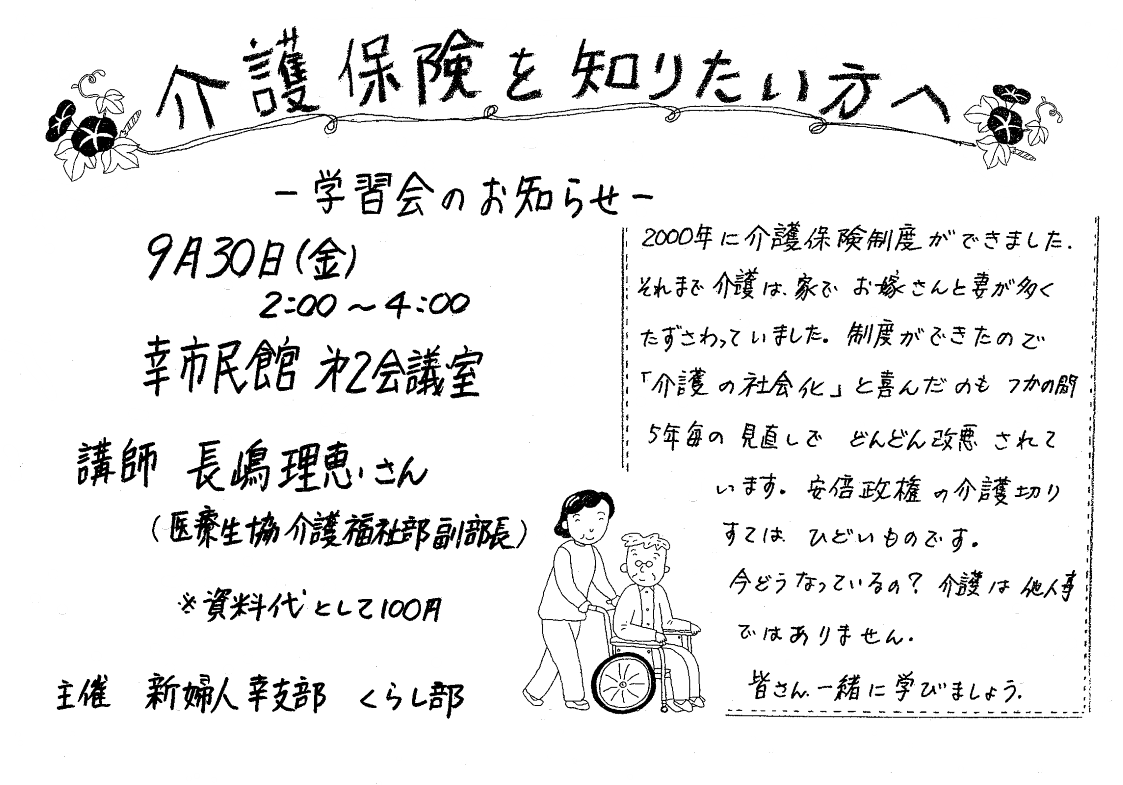 介護保険を知りたい方へ
－学習会のお知らせ－
9月30日(金)
2:00～4:00
幸市民館 才2会議室
講師 長嶋理恵さん
(医療生協介護福祉部副部長)
※資料代として100円
主催 新婦人幸支部 くらし部
2000年に介護保険制度ができました.
それまで介護は、家で お嫁さんと妻が多く
たずさわっていました。制度ができたので
「介護の社会化」と喜んだのも つかの間
5年毎の 見直しで どんどん改悪 されて
います。安倍政権の介護切り
すては ひどいものです。
今どうなっているの? 介護は他人事
ではありません.
皆さん.一緒に学びましょう.